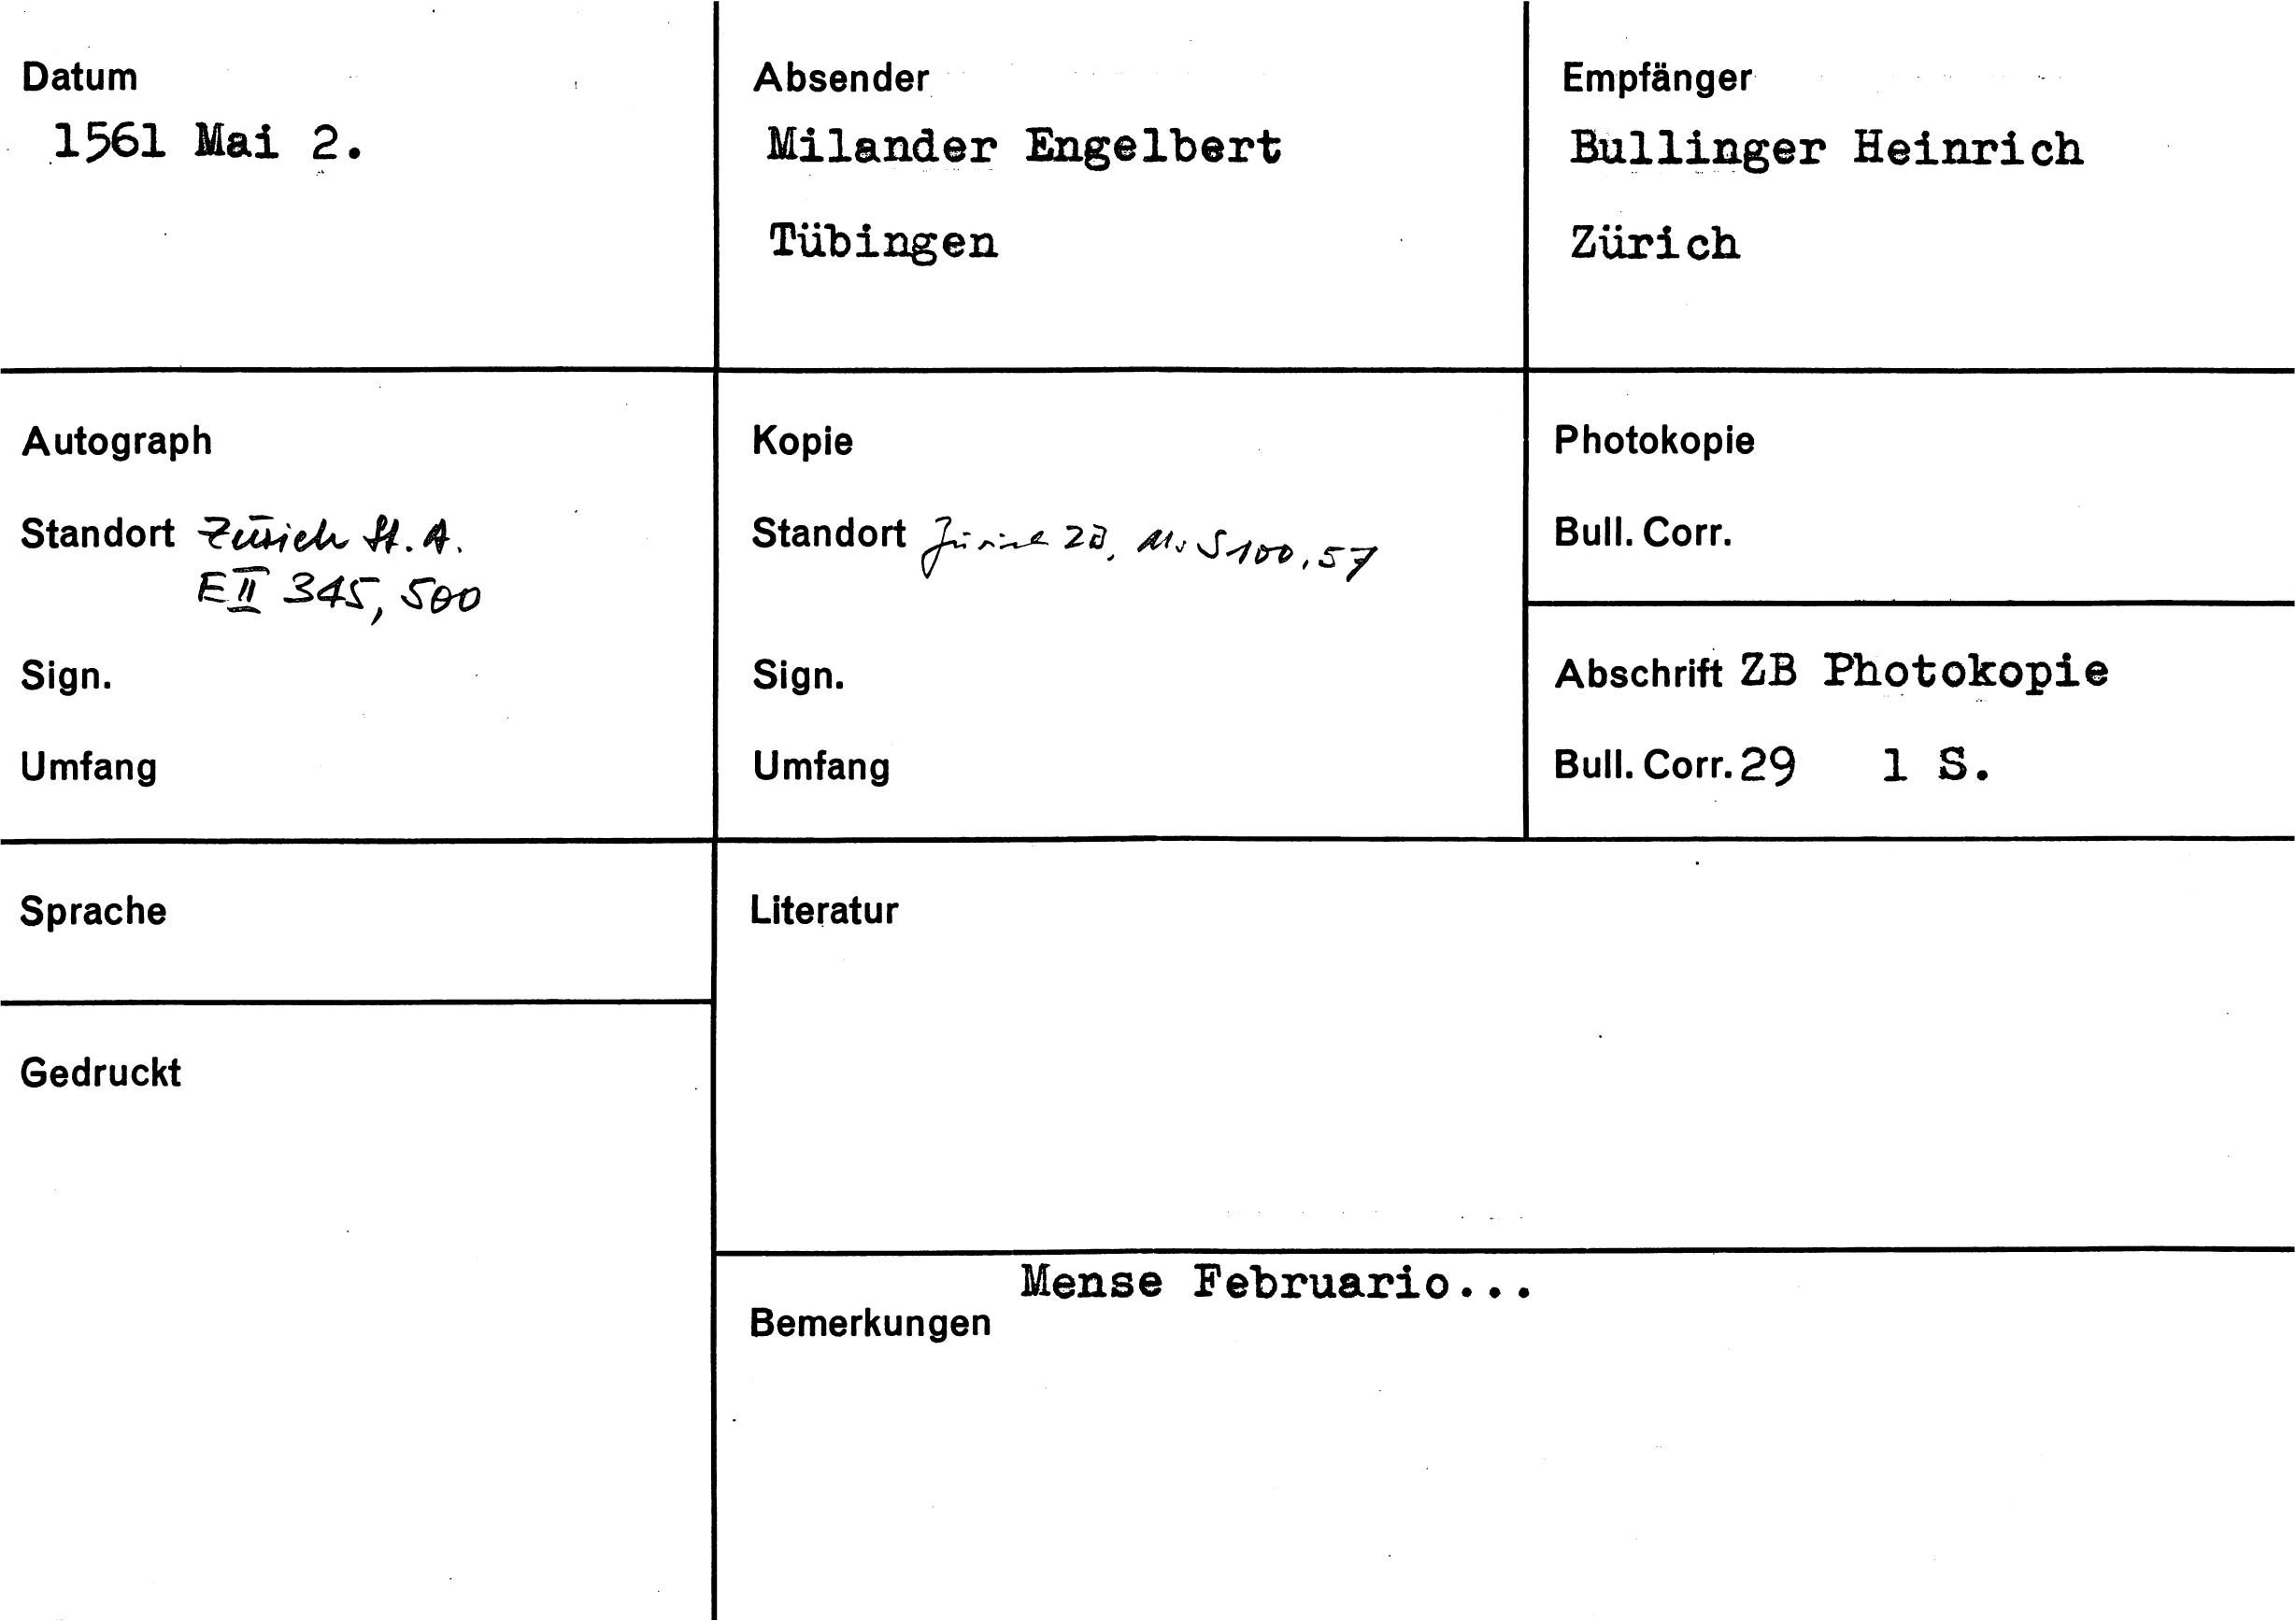 Datum
1561 Mai 2.
Absender
Milander Engelbert
Tübingen
Empfänger
Bullinger Heinrich
Zürich
Autograph
Standort Zürich St. A.
E II 345, 500
Sign.
Umfang
Kopie
Standort Zürich ZB, Ms S 100, 57
Sign.
Umfang
Photokopie
Bull. Corr.
Abschrift ZB Photokopie
Bull. Corr. 29 1 S.
Sprache
Literatur
Gedruckt
Mense Februario...
Bemerkungen